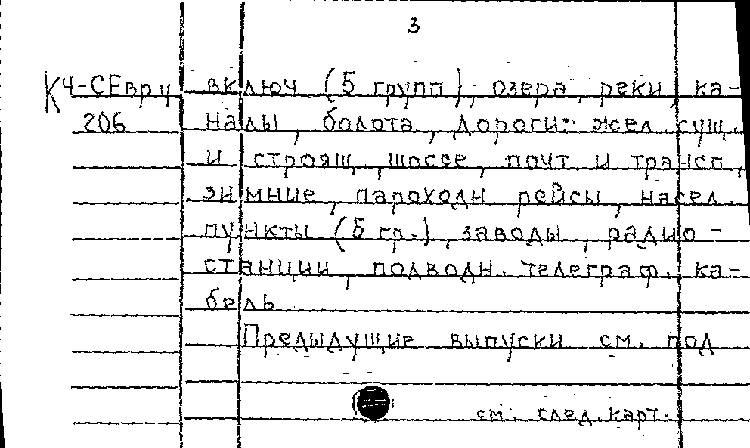 3
К Ч-СЕвр ц включ (5 групп), озера, реки, ка-
206 налы, болота, дороги: жел. сущ.
и строящ., шоссе, почт. и трансп.,
зимние, пароходн рейсы, насел.
пункты (5 гр.), заводы, радио-
станции, подводн. телеграф. ка-
бель.
Предыдущие выпуски см. под
см. след. карт.